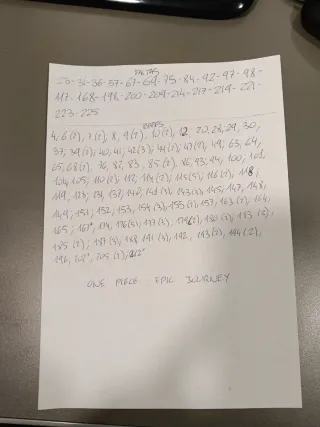 FALTAS
23-31-36-57-67-69-75-84-92-97-98-
117-168-198-200-209-214-217-219-221-
223-225
REPES
4, 6(2), 7(2), 8, 9(2), 10(2), 12, 20, 28, 29, 30,
37, 39(2), 40, 41, 42(3), 44(2), 47(2), 49, 63, 64,
65, 68(2), 76, 82, 83, 85(2), 86, 93, 94, 100, 101,
104, 105, 110(2), 112, 114(2), 115(5), 116(2), 118,
119, 123, 131, 137, 140, 141(3), 143(3), 145, 147, 148,
149, 151, 152, 153, 154(3), 155(2), 157, 163(2), 164,
165, 167*, 174, 176(5), 177(3), 179(2), 180(3), 183(2),
185(2), 187(3), 188, 191(3), 192, 193(2), 194(2),
196, 202*, 205(2), 212*
ONE PIECE EPIC JOURNEY